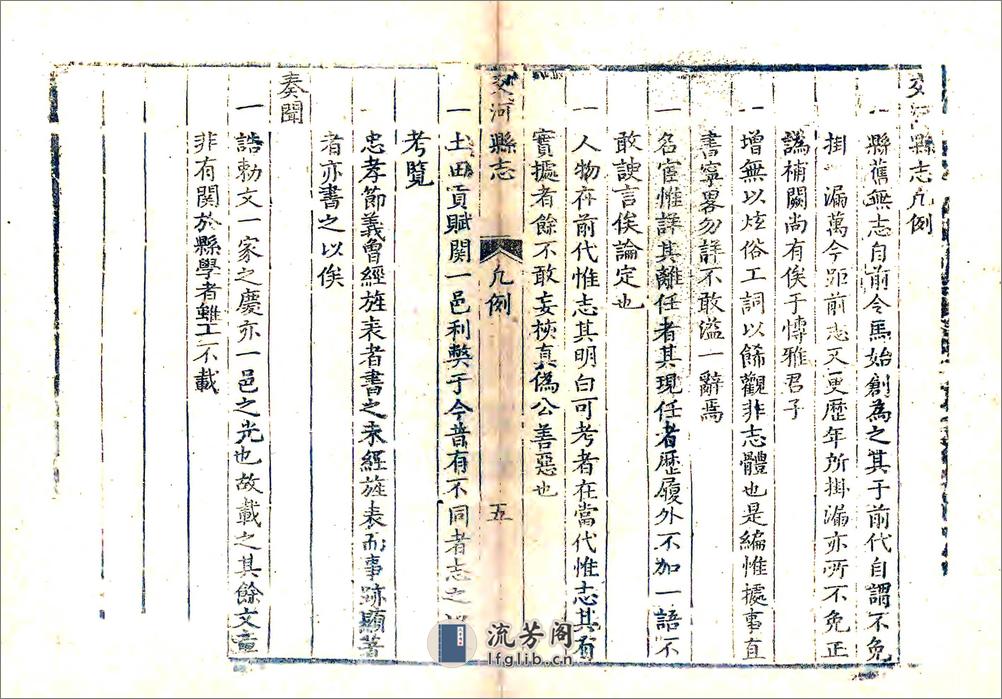 交河縣志凡例
一縣舊無志自前令馬始創為之其于前代自謂不免
掛漏萬今距前志又更歷年所掛漏亦所不免正
譌補闕尚有俟于愽雅君子
一增無以炫俗工詞以餙觀非志體也是編惟據事直
書寧畧勿詳不敢溢一辭焉
一名宦惟詳其離任者其現任者歷履外不加一語不
敢諛言俟論定也
一人物在前代惟志其明白可考者在當代惟志其有
實據者餘不敢妄挾真偽公善惡也
交河縣志
凡例
五
一土田貢賦関一邑利獘于今昔有不同者志之
考覽
忠孝節義曾經旌表者書之未經旌表而事跡顯著
者亦書之以俟
奏聞
一誥勅文一家之慶亦一邑之光也故載之其餘文章
非有関於縣學者雖工不載
流芳阁
lfglib.cn